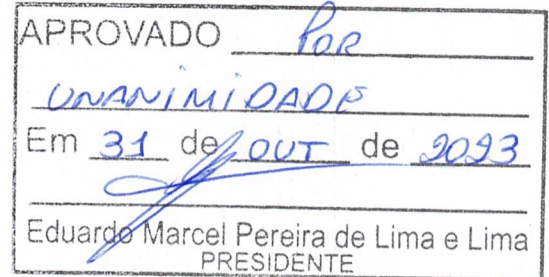 APROVADO POR
UNANIMIDADE
Em 31 de OUT de 2023
Eduardo Marcel Pereira de Lima e Lima
PRESIDENTE